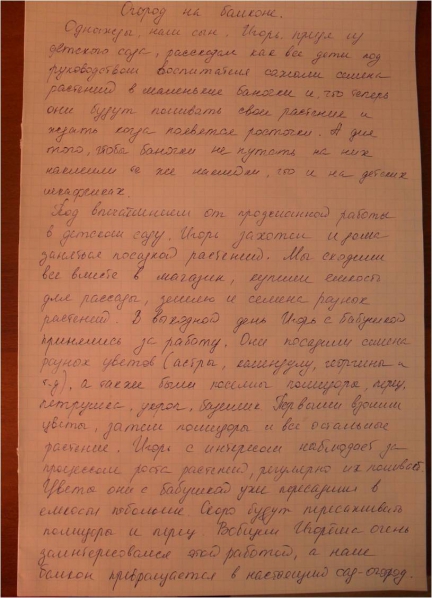 Огород на балконе.
Однажды, наш сын, Игорь пришёл из
детского сада, рассказал как все дети под
руководством воспитателя сажали семена
растений в маленькие баночки и что теперь
они будут поливать свои растения и
ждать когда появятся росточки. А для
того, чтобы баночки не путать на них
наклеили те же наклейки, что и на детских
шкафчиках.
Под впечатлением от проделанной работы
в детском саду, Игорь захотел и дома
заняться посадкой растений. Мы сходили
все вместе в магазин, купили ёмкость
для рассады, землю и семена разных
растений. В выходной день Игорь с бабушкой
принялись за работу. Они посадили семена
разных цветов (астры, календулу, георгины и
т.д), а также были посеяны помидоры, перец,
петрушка, укроп, базилик. Первыми взошли
цветы, затем помидоры и все остальные
растение. Игорь с интересом наблюдает за
процессом роста растений, регулярно их поливает.
Цветы они с бабушкой уже пересадили в
ёмкости побольше. Скоро будут пересаживать
помидоры и перец. Вобщем Игорь очень
заинтересовался этой работой, а наш
балкон превращается в настоящий сад-огород.